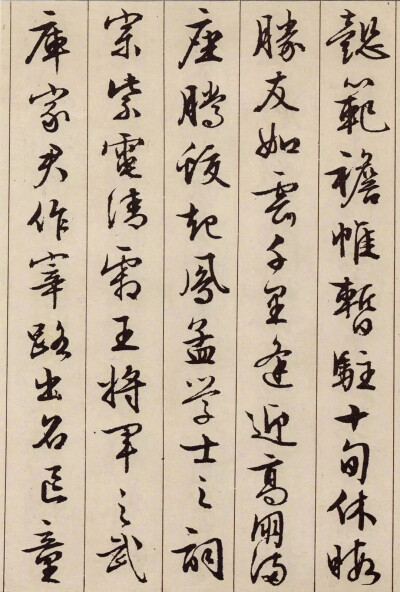 懿範襜帷暫駐十旬休暇
勝友如雲千里逢迎高朋滿
座騰蛟起鳳孟學士之詞
宗紫電清霜王將軍之武
庫家君作宰路出名區童